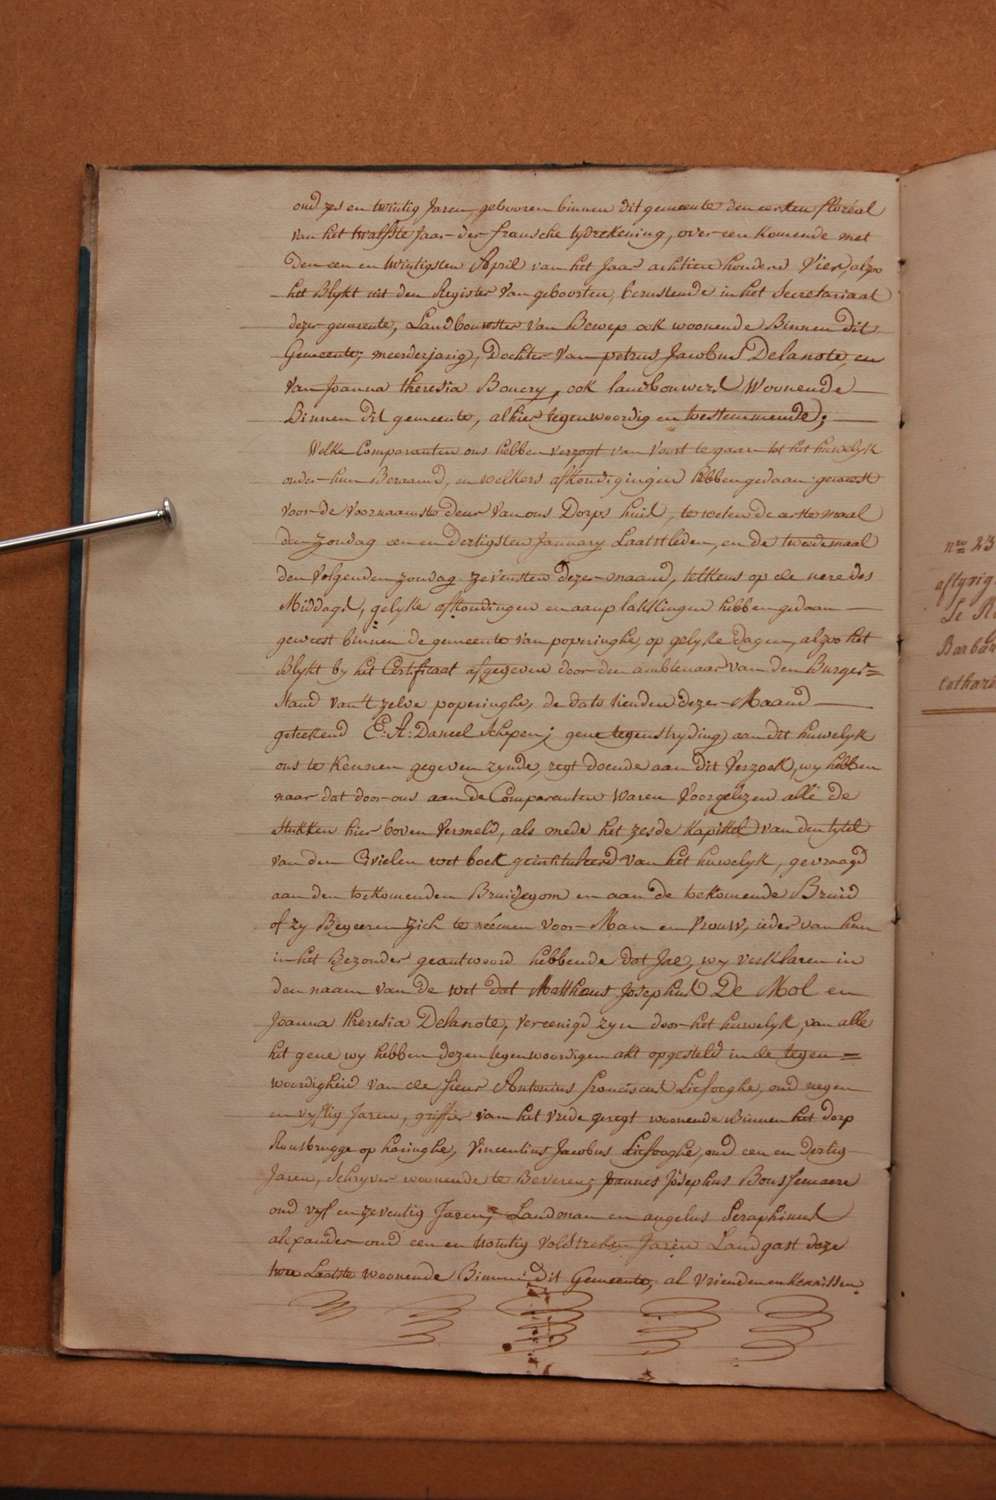 oud zes en twintig Jaren, gebooren binnen dit gemeente den eersten floréal
van het twalfste Jaar der fransche tydrekening, over een komende met
den een en twintigsten April van het Jaar achttien honderd Vier, alzo
het Blykt uit den Register van geboorten, berustende in het Secretariaat
dezer gemeente, Landbouwster van Beroep ook woonende Binnen dit
Gemeente, meerderjarig, Dochter van petrus Jacobus Delanote, en
van Joanna theresia Boucry, ook landbouwers Woonende
Binnen dit gemeente, alhier tegenwoordig en toestemmende;
Welke Comparanten ons hebben verzogt van voort te gaan tot het huwelyk
onder hun Beraamd, en welkers afkondigingen hebben gedaan geweest
voor de voornaamste deur van ons Dorps huis, te weten de eerste maal
den zondag een en dertigsten January Laatstleden, en de tweedemaal
den volgenden zondag zevensten dezer maand, telkens op de uere des
Middags, gelyke afkondingen en aanplakkingen hebben gedaan
geweest binnen de gemeente van poperinghe, op gelyke dagen, alzoo het
Blykt by het Certifikaat afgegeven door den ambtenaar van den Burger=
stand van 't zelve poperinghe, de dato tienden dezer Maand
geteekend E. A. Daneel schepen; gene tegenstryding aan dit huwelyk
ons te kennen gegeven zynde, regt doende aan dit verzoek, wy hebben
naar dat door ons aan de Comparanten waren voorgelezen alle de
stukken hier boven vermeld, als mede het zesde kapittel van den tytel
van den Civielen wet boek geintituleerd van het huwelyk, gevraagd
aan den toekomenden Bruidegom en aan de toekomende Bruid
of zy Begeeren zich te néémen voor Man en Vrouw, ieder van hun
in het Bezonder geantwoord hebbende dat Jae, wy verklaren in
den naam van de wet dat Mattheus Josephus De Mol en
Joanna theresia Delanote, vereenigd zyn door het huwelyk, van alle
het gene wy hebben dezen tegenwoordigen akt opgesteld in de tegen=
woordigheid van de sieur Antonius franciscus Liefooghe, oud negen
en vyftig Jaren, griffier van het vrede geregt woonende Binnen het dorp
Rousbrugge op haringhe, Vincentius Jacobus Liefooghe, oud een en dertig
Jaren, Schryver woonende te Beveren; Joannes Josephus Boussemaere
oud vyf en zeventig Jaren, Landman en angelus Seraphinus
alexander oud een en twintig voldtrokken Jaren Landgast deze
twee Laatste woonende Binnen dit Gemeente, al vrienden en kennissen
nro 23
Le R
Barba